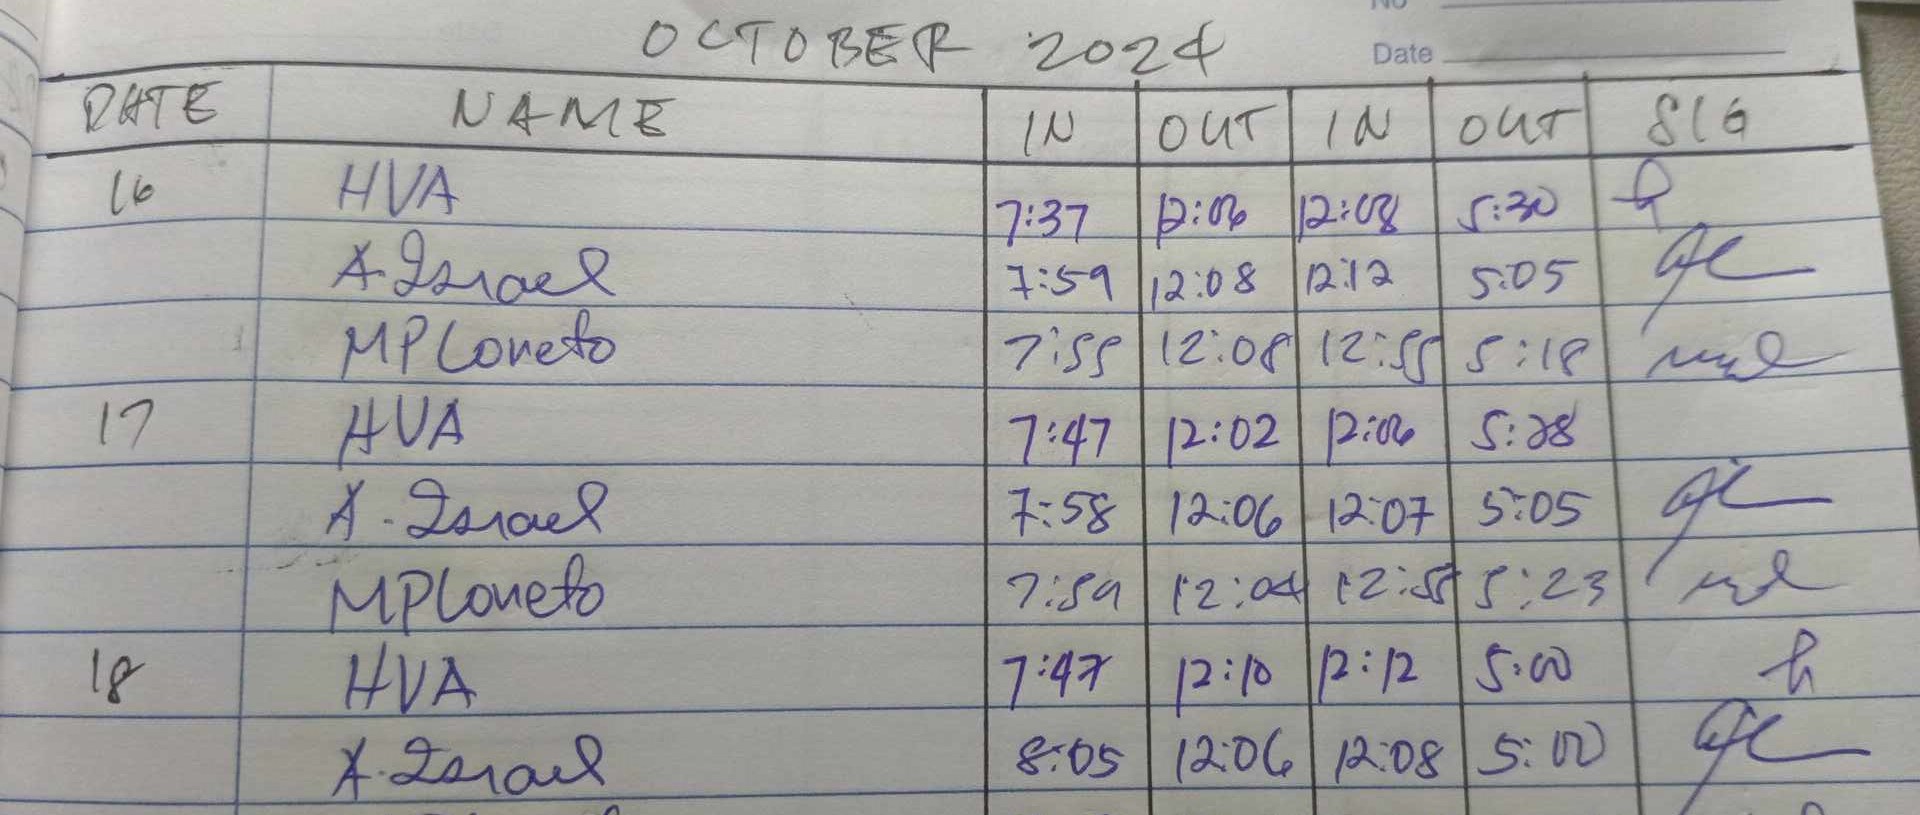 OCTOBER 2024
No
Date
DATE NAME IN OUT IN OUT SIG
16 HVA 7:37 12:06 12:08 5:30
A. Israel 7:59 12:08 12:12 5:05
MPLoneto 7:55 12:08 12:55 5:18
17 HVA 7:47 12:02 12:06 5:28
A. Israel 7:58 12:06 12:07 5:05
MPLoneto 7:59 12:04 12:55 5:23
18 HVA 7:47 12:10 12:12 5:00
A. Israel 8:05 12:06 12:08 5:00